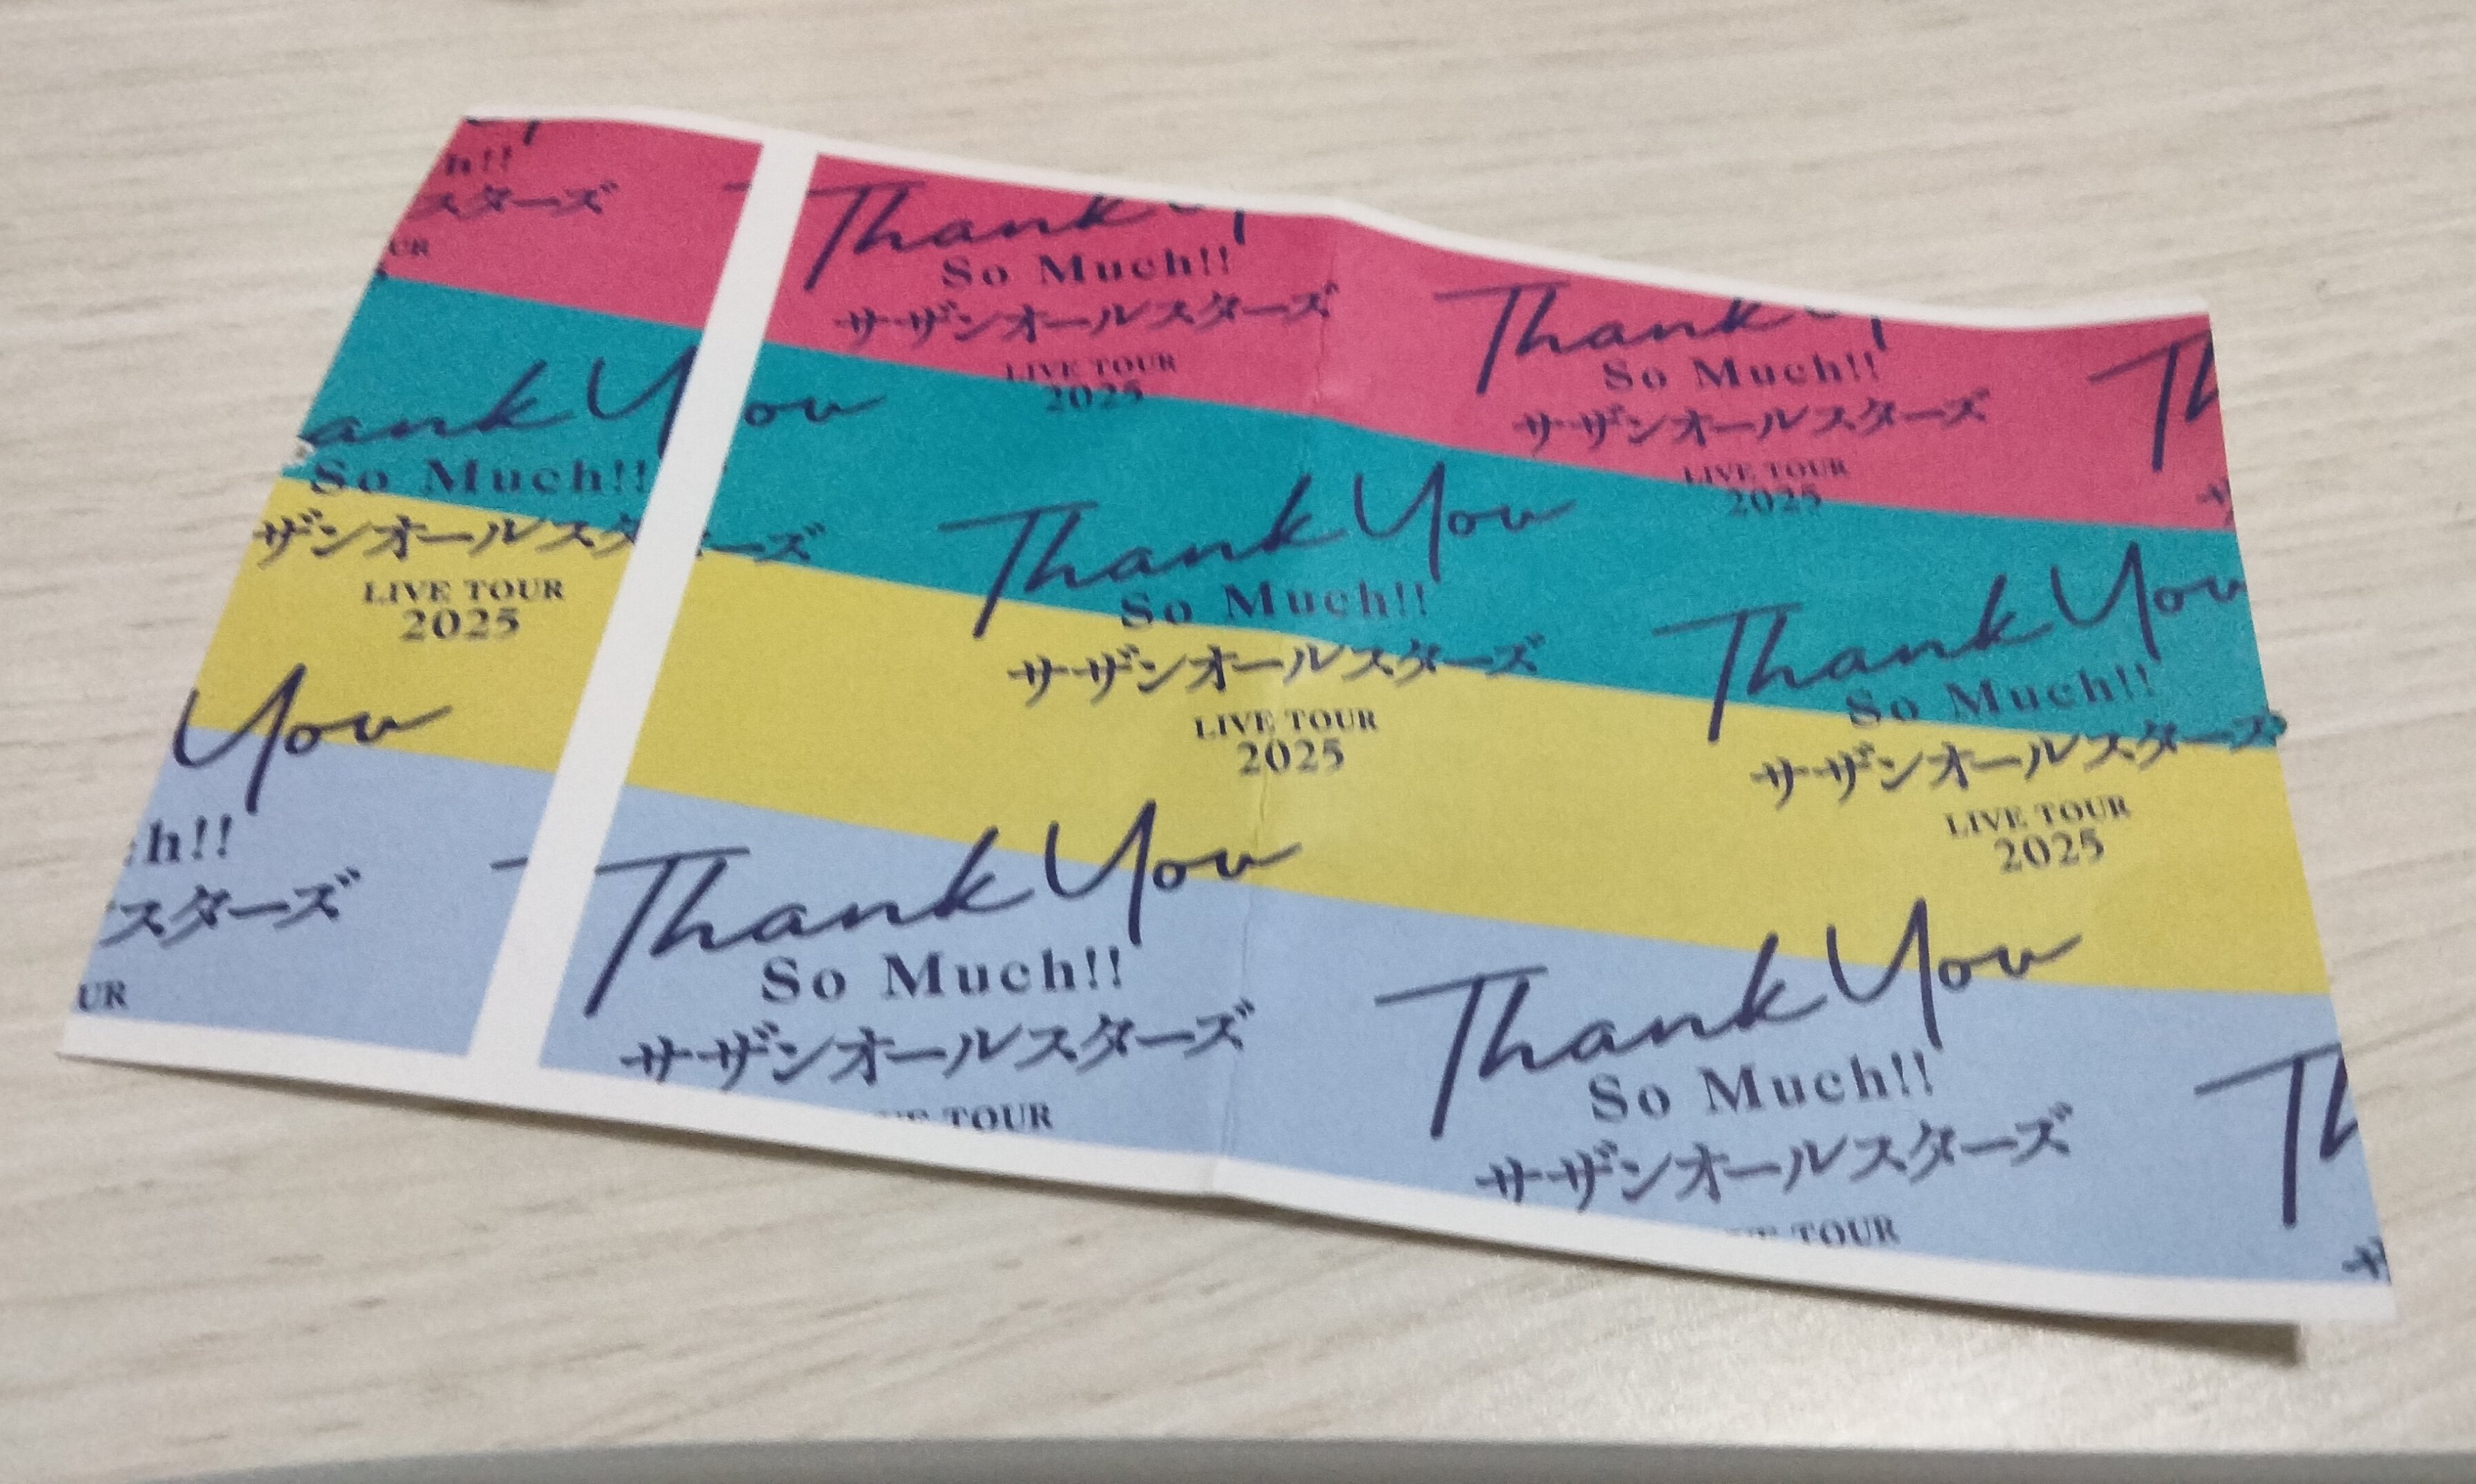 h!!
スターズ
UR
Thank
So Much!!
サザンオールスターズ
LIVE TOUR
2025
Thank
So Much!!
サザンオールスターズ
LIVE TOUR
2025
Th
ank You
So Much!!
ザンオールスターズ
LIVE TOUR
2025
Thank You
So Much!!
サザンオールスターズ
LIVE TOUR
2025
Thank You
So Much!!
サザンオールスターズ
LIVE TOUR
2025
You
h!!
スターズ
UR
Thank You
So Much!!
サザンオールスターズ
TOUR
Thank You
So Much!!
サザンオールスターズ
TOUR
Th
サ